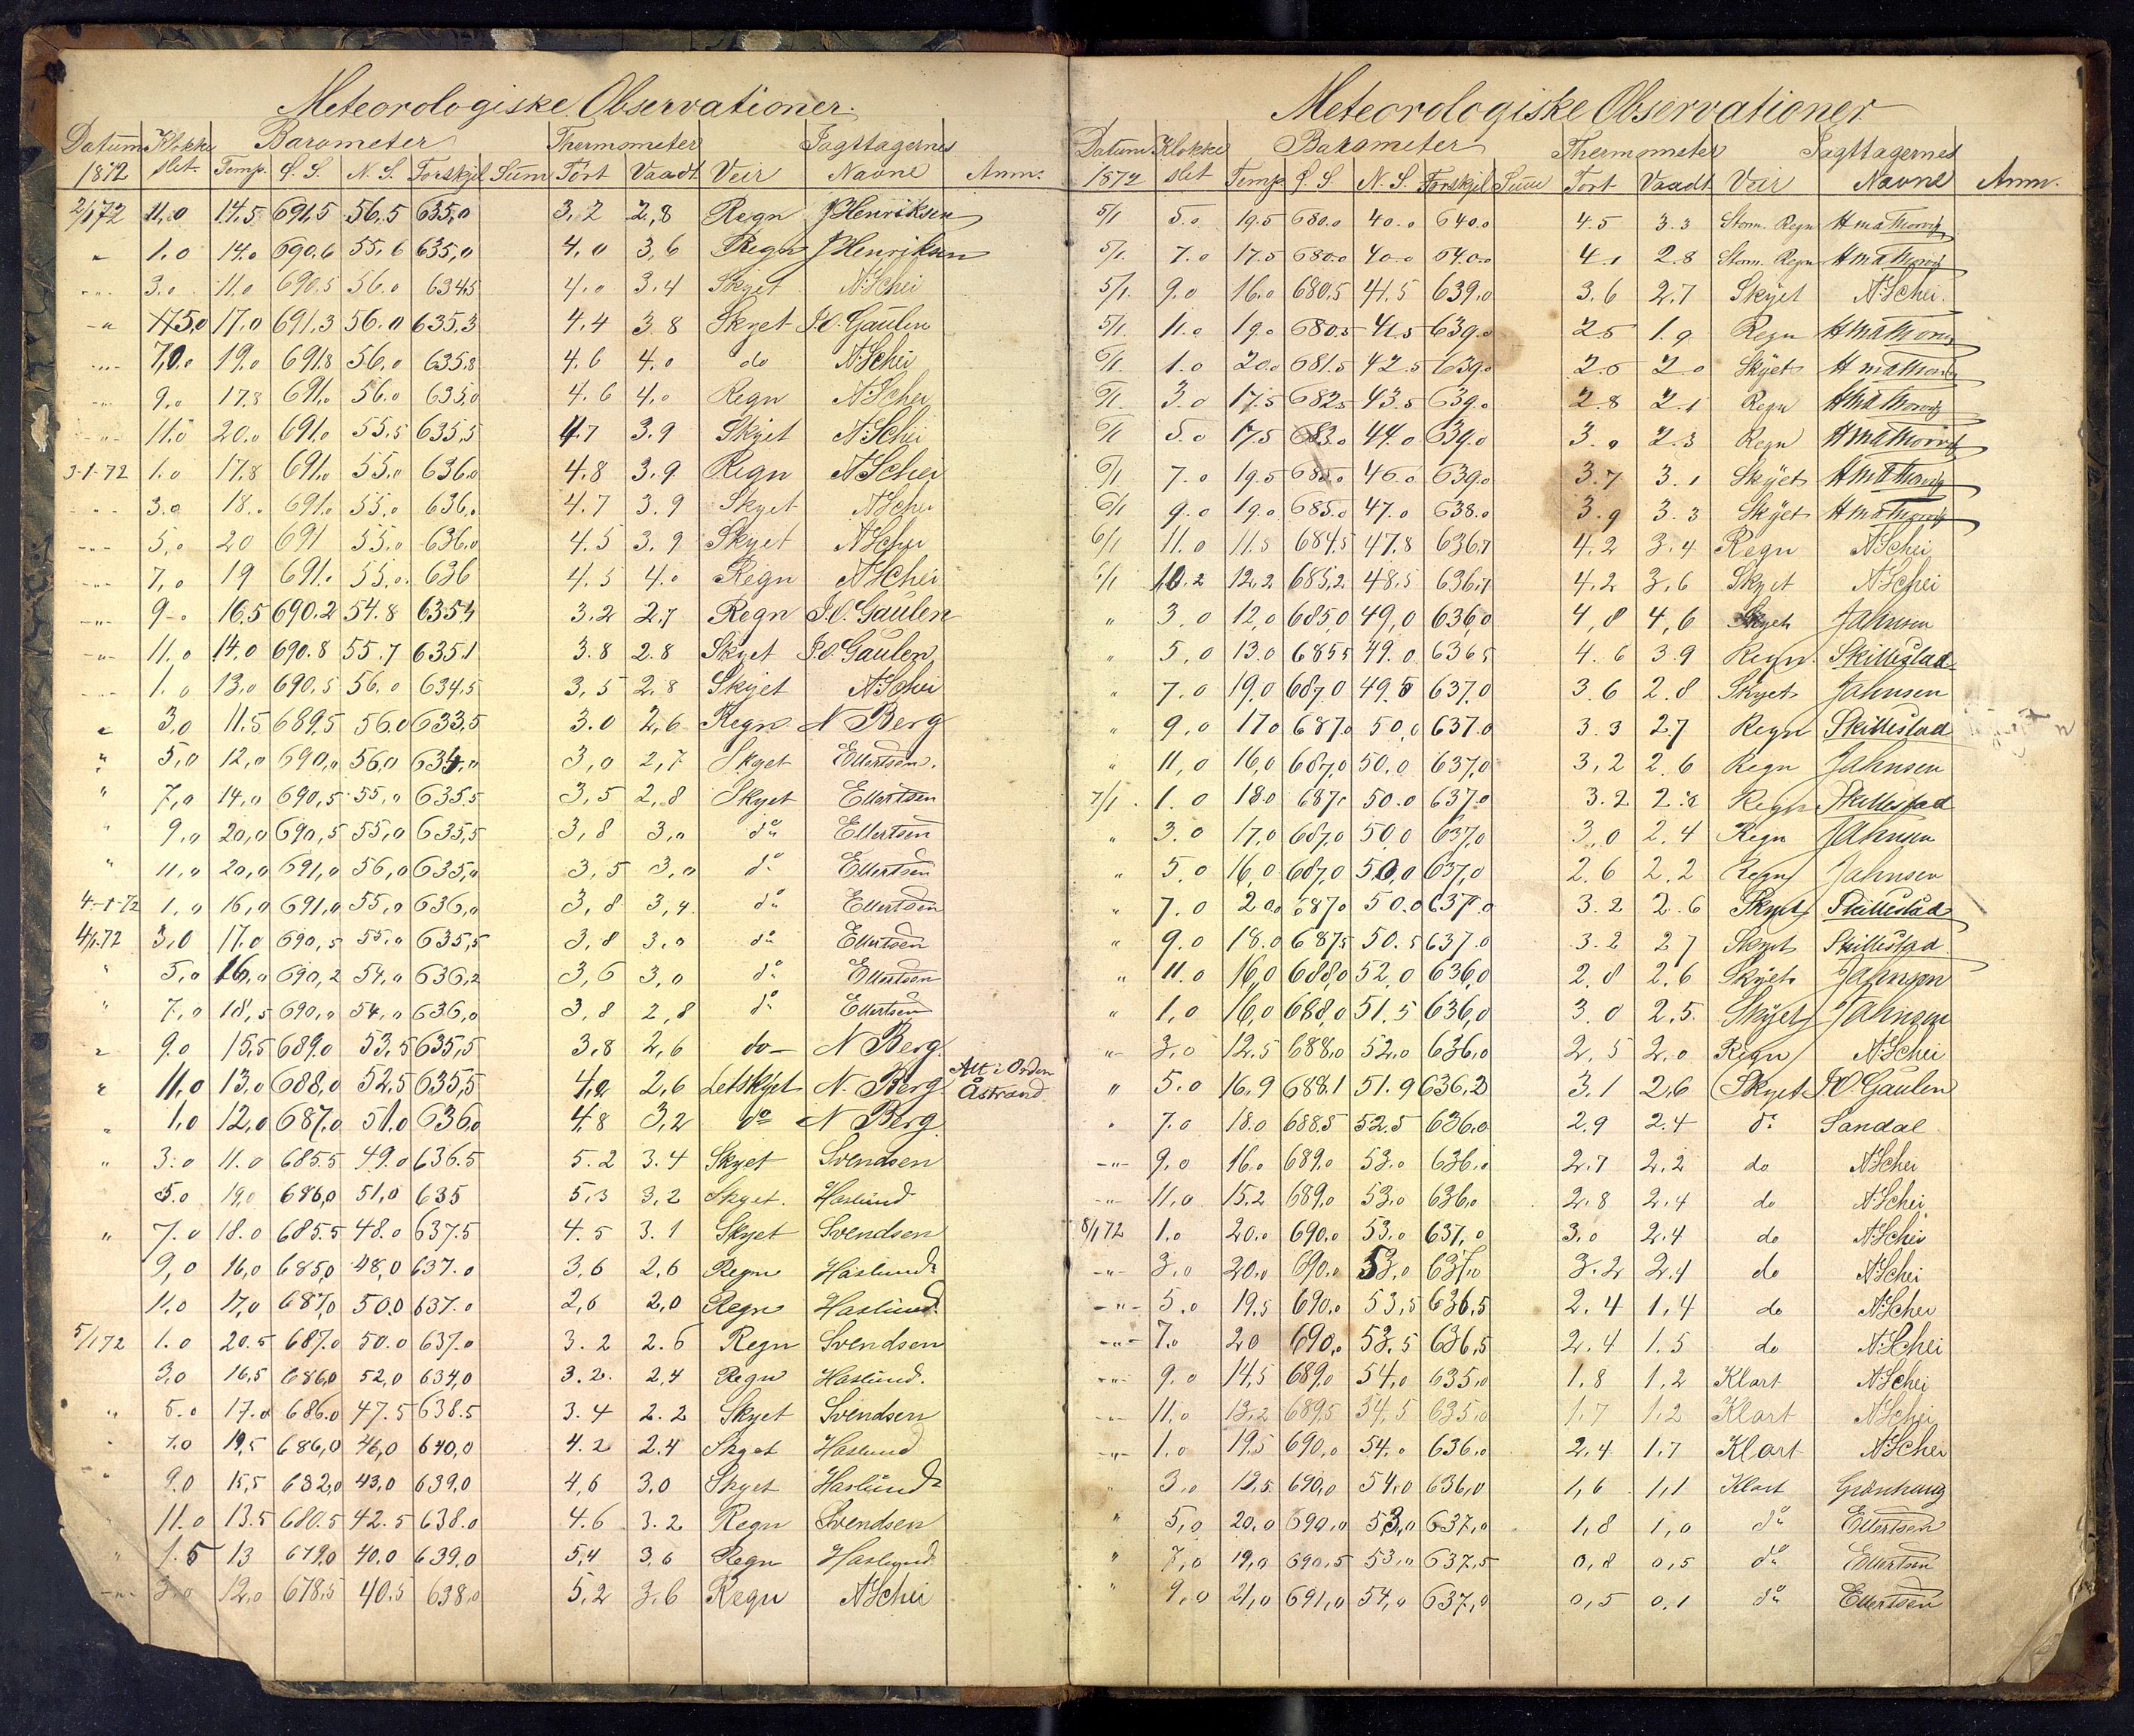 Meteorologiske Observationer.
Datum Klokke Barometer Thermometer Iagttagernes
1872 slet Temp. Ø. S. N. S. Forskjel Sum Tört Vaadt Veir Navne Anm.
2/1 72 11,0 14.5 691,5 56,5 635,0 3,2 2,8 Regn J Henriksen
" 1.0 14.0 690,6 55,6 635,0 4,0 3,6 Regn J Henriksen
-"- 3.0 11.0 690,5 56.0 634,5 4.0 3.4 Skyet A. Schei
-"- 5,0 17.0 691,3 56.0 635,3 4.4 3.8 Skyet J.O. Gaulen
-"- 7,0 19.0 691.8 56.0 635.8 4.6 4.0 do A. Schei
-"- 9.0 17.8 691.0 56.0 635,0 4.6 4.0 Regn A. Schei
-"- 11.0 20.0 691.0 55.5 635,5 4.7 3.9 Skyet A. Schei
3-1-72 1.0 17.8 691.0 55.0 636.0 4.8 3.9 Regn A. Schei
-"- 3.0 18.. 691.0 55.0 636.0 4.7 3.9 Skyet A. Schei
-"- 5,0 20 691 55.0 636,0 4.5 3.9 Skyet A. Schei
-"- 7,0 19 691. 55.0 636 4.5 4.0 Regn A. Schei
-"- 9.0 16,5 690.2 54.8 635.4 3.2 2.7 Regn J.O. Gaulen
-"- 11.0 14.0 690.8 55.7 635.1 3.8 2.8 Skyet J.O. Gaulen
-"- 1.0 13.0 690.5 56.0 634.5 3,5 2.8 Skyet A. Schei
" 3.0 11.5 689,5 56.0 633,5 3.0 2,6 Regn N Berg
" 5,0 12,0 690,0 56,0 634,0 3,0 2,7 Skyet Ellertsen.
" 7,0 14,0 690,5 55,0 635,5 3,5 2,8 Skyet Ellertsen
" 9,0 20,0 690,5 55,0 635,5 3,8 3,0 do Ellertsen
" 11,0 20,0 691,0 56,0 635,0 3,5 3,0 do Ellertsen
4-1-72 1,0 16,0 691,0 55,0 636,0 3,8 3,4 do Ellertsen
4/1 72 3,0 17.0 690,5 55,0 635,5 3,8 3,0 do Ellertsen
" 5,0 16,0 690,2 54,0 636,2 3,6 3,0 do Ellertsen
" 7,0 18,5 690,0 54,0 636,0 3,8 2,8 do Ellertsen
" 9.0 15,5 689.0 53,5 635,5 3,8 2,6 do N Berg.
Alt i Orden
" 11,0 13.0 688,0 52,5 635,5 4,2 2,6 Letskyet N. Berg Åstrand
" 1,0 12,0 687,0 51.0 636,0 4,8 3,2 do N Berg.
" 3.0 11.0 685.5 49.0 636.5 5.2 3.4 Skyet Svendsen
5.0 19,0 686,0 51,0 635 5,3 3,2 Skyet. Haslund
" 7.0 18.0 685.5 48.0 637.5 4.5 3.1 Skyet Svendsen
9,0 16,0 685,0 48,0 637.0 3,6 2,6 Regn Haslund
11,0 17,0 687,0 50.0 637.0 2,6 2,0 Regn Haslund
5/1 72 1.0 20.5 687.0 50.0 637.0 3.2 2.6 Regn Svendsen
3,0 16,5 686,0 52,0 634,0 3.2. 2,4 Regn Haslund.
" 5.0 17.0 686.0 47.5 638.5 3.4 2.2 Skyet Svendsen
" 7.0 19,5 686,0 46,0 640,0 4.2 2.4 Skyet Haslund
" 9.0 15,5 682,0 43,0 639,0 4,6 3.0 Skyet Haslund
11.0 13.5 680.5 42.5 638.0 4.6 3.2 Regn Svendsen
" 1.5 13 679,0 40.0 639,0 5,4 3,6 Regn Haslund
-"- 3.0 12,0 678,5 40.5 638,0 5,2 3,6 Regn A. Schei
Meteorologiske Observationer
Datum Klokke Barometer Thermometer Iagttagernes
1872 slet Temp Ø. S. N. S. Forskjel Sum Tört Vaadt Veir Navne Anm.
5/1 5.0 19.5 680.0 40.0 640.0 4.5 3.3 Storm. Regn
5/1. 7.0 17.5 680.0 40.0 640.0 4.1 2.8 Storm. Regn
5/1. 9.0 16.0 680.5 41.5 639.0 3.6 2.7 Skyet A. Schei.
5/1 11.0 19.0 680.5 41.5 639.0 2.5 1.9 Regn
6/1 1.0 20.0 681.5 42.5 639.0 2.5 2.0 Skyet
6/1. 3.0 17.5 682.5 43.5 639.0 2.8 2.1 Regn
6/1 5.0 17.5 683.0 44.0 639.0 3.0 2.3 Regn
6/1 7.0 19.5 685.0 46.0 639.0 3.7 3.1 Skyet
6/1 9.0 19.0 685.0 47.0 638.0 3.9 3.3 Skyet
6/1 11.0 11.5 684.5 47.8 636.7 4.2 3.4 Regn A. Schei
6/1 10.2 12.2 685,2 48.5 636.7 4.2 3.6 Skyet A. Schei
" 3.0 12,0 685,0 49,0 636,0 4,8 4,6 Skyet Jahnsen
" 5.0 13.0 685.5 49.0 636.5 4.6 3.9 Regn. Skillestad
" 7.0 19,0 687,0 49.5 637.0 3 6 2.8 Skyet Jahnsen
" 9.0 17.0 687.0 50,0 637.0 3.3 2.7 Regn Skillestad
" 11,0 16,0 687,0 50.0 637,0 3,2 2.6 Regn Jahnsen
7/1. 1.0 18.0 687. 50.0 637.0 3.2 2.8 Regn Skillestad
" 3.0 17,0 687,0 50,0 637,0 3,0 2.4 Regn Jahnsen
" 5.0 16,0 687,0 50,0 637,0 2.6 2.2 Regn Jahnsen
" 7.0 20.0 687.0 50.0 637.0 3.2 2.6 Skyet Skillestad
" 9.0 18.0 687.5 50.5 637.0 3.2 2.7 Skyet Skillestad
" 11.0 16,0 688,0 52,0 636,0 2,8 2.6 Skyet Jahnsen
" 1,0 16,0 688,0 51.5 636,0 3.0 2.5. Skyet Jahnsen
-"- 3.0 12.5 688.0 52.0 636.0 2,5 2.0 Regn A. Schei
" 5.0 16.9 688.1 51.9 636,2 3.1 2,6 Skyet J.O Gaulen
" 7.0 18.0 688.5 52.5 636.0 2.9 2.4 do Sandal
-"- 9.0 16.0 689.0 53.0 636.0 2.7 2.2 do A. Schei
-"- 11.0 15.2 689.0 53.0 636.0 2.8 2.4 do A. Schei
8/1 72 1.0 20.0 690.0 53.0 637,0 3.0 2.4 do A. Schei
-"- 3.0 20.0 690.0 53.0 637.0 3.2 2.4 do A. Schei
-"- 5.0 19.5 690.0 53,5 636,5 2.4 1,4 do A. Schei
-"- 7.0 20 690,0 53.5 636,5 2.4 1.5 do A. Schei
-"- 9.0 14,5 689,0 54,0 635,0 1,8 1,2 Klart A. Schei
-"- 11,0 13,2 689,5 54,5 635,0 1,7 1,2 Klart A. Schei
-"- 1.0 19.5 690.0 54.0 636.0 2,4 1.7 Klart A. Schei
" 3,0 19,5 690,0 54,0 636,0 1,6 1,1 Klart
" 5,0 20,0 690,0 53,0 637,0 1,8 1,0 do Ellertsen
" 7,0 19,0 690,5 53,0 637,5 0,8 0,5 do Ellertsen
" 9,0 21,0 691,0 54,0 637,0 0,5 0.1 do Ellertsen